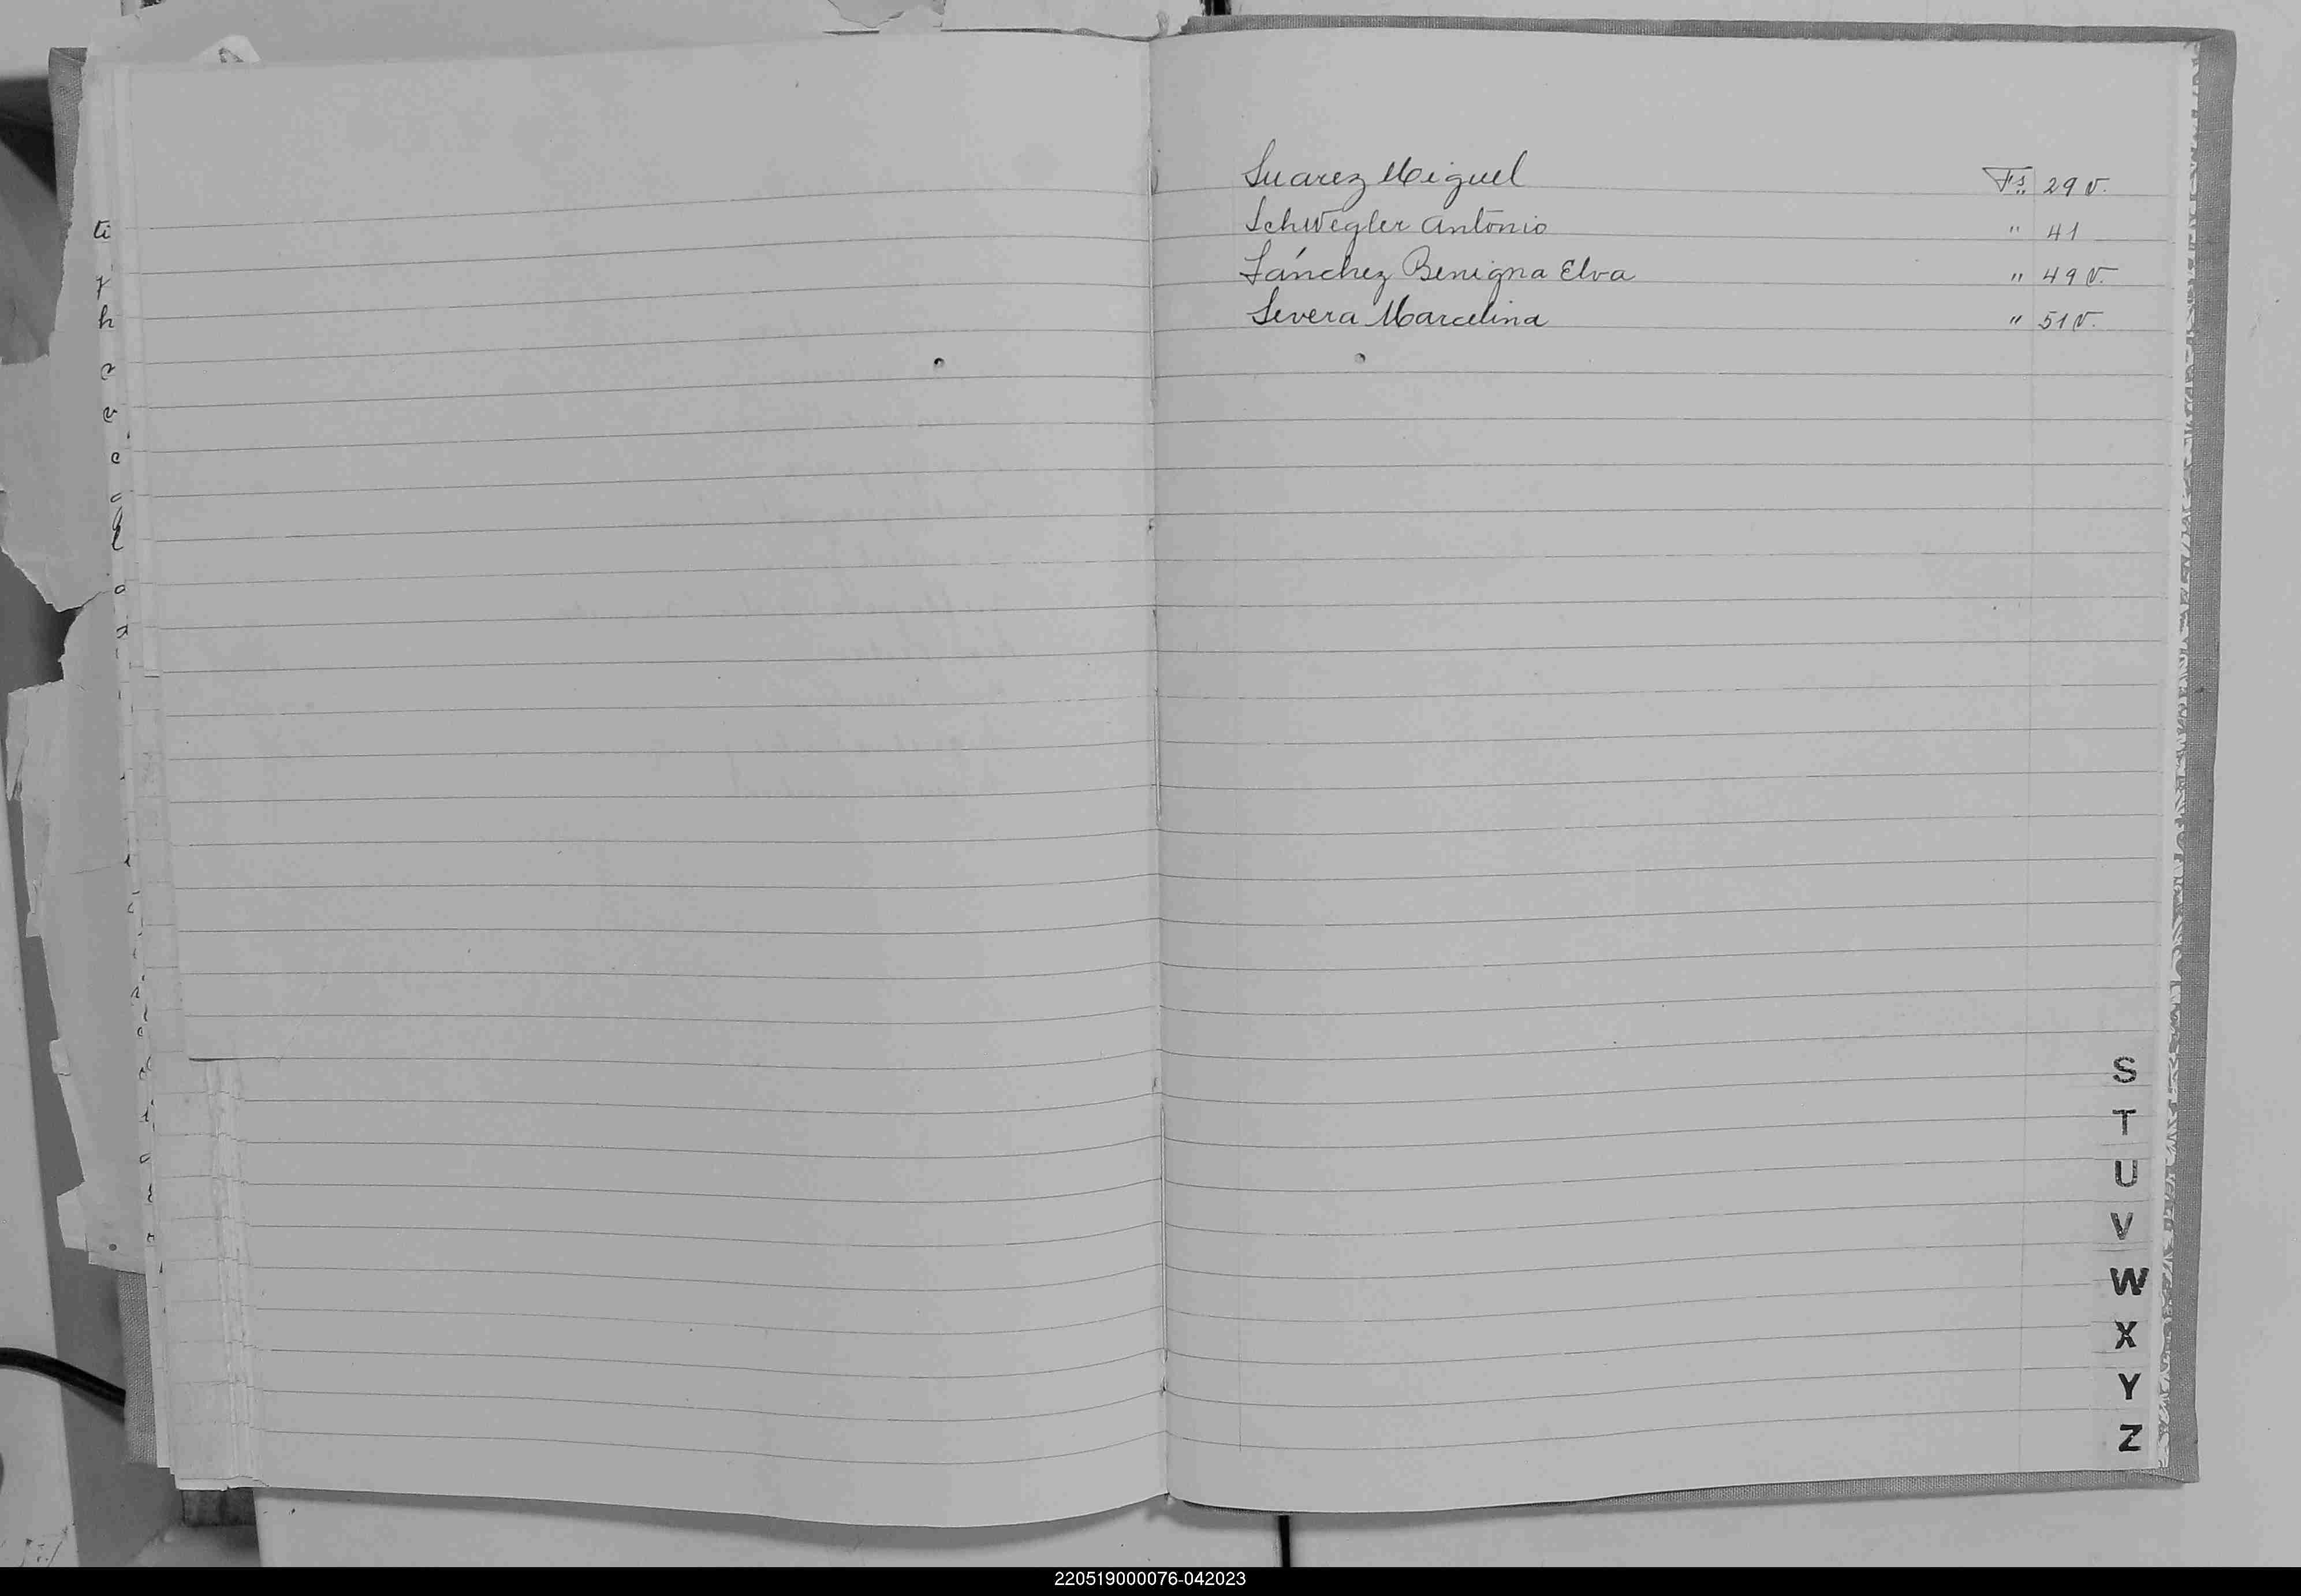 Suarez Miguel Fs. 29 v.
Schwegler Antonio " 41
Sánchez Benigna Elva " 49 v.
Severa Marcelina " 51 v.
S
T
U
V
W
X
Y
Z
220519000076-042023